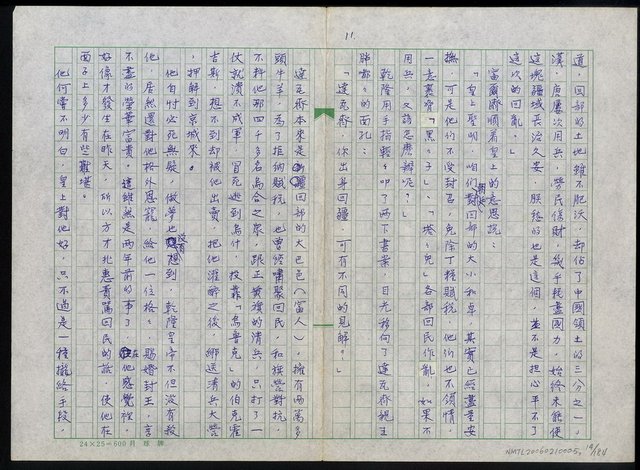 11.
道，回部的土地雖不肥沃，卻佔了中國領土的三分之一，
漢、唐屢次用兵，勞民傷財，幾乎耗盡國力，始終未能使
這塊疆域長治久安，朕飭的也是這個，並不是担心平不了
這次的回亂。」
富爾齊順着皇上的意思說：
「皇上聖明，咱們朝廷對回部的大小和卓，其實已經盡量安
撫，可是他們不受封官，免除丁糧賦稅，他們也不領情，
一意裹脅「黑子」、「塔克」各部回民作亂，如果不
用兵，又該怎麼辦呢？」
乾隆用手指輕叩了兩下書案，目光移向了達瓦齊親王
胖嘟嘟的面孔：
「達瓦齊，你出身回疆，可有不同的見解？」
達瓦齊本來是回部的大巴邑（富人），擁有兩萬多
頭牛羊，為了拒納賦稅，也曾嘯聚回民，和旗營對抗，
不料他那四千多名烏合之眾，跟正黃旗的清兵，只打了一
仗就潰不成軍，冒死逃到烏什，投靠「烏魯克」的伯克霍
吉斯，想不到卻被他出賣，把他灌醉之後，綁送清兵大營
，押解到京城來。
他自忖必死無疑，做夢也沒有想到，乾隆皇帝不但沒有殺
他，居然還對他格外恩寵，給他一位格格，賜婚封王，享
不盡的榮華富貴。這雖然是兩年前的事了，在他感覺裡，
好像才發生在昨天，所以方才兆惠責罵回民的話，使他在
面子上多少有些難堪。
他何嘗不明白，皇上對他好，只不過是一種攏絡手段，
24×25=600月球牌
NMTL20060210005